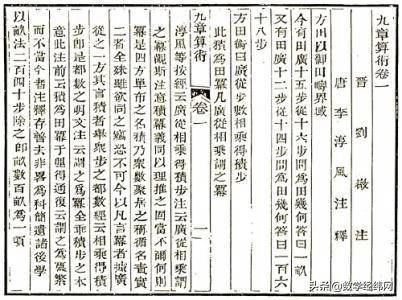 九章算術卷一
晉劉徽注
唐李淳風注釋
方田以御田疇界域
今有田廣十五步從十六步問為田幾何答曰一畝
又有田廣十二步從十四步問為田幾何答曰一百六
十八步
方田術曰廣從步數相乘得積步
此積為田冪凡廣從相乘謂之冪
九章算術
卷一
一
淳風等按經云廣從相乘得積步注云廣從相乘謂
之冪觀斯注意積冪義同以理推之固當不爾何則
冪是方面單布之名積乃衆數聚居之稱循名責實
二者全殊雖欲同之竊恐不可今以凡言冪者據廣
從之一方其言積者舉衆步之都數經云相乘得積
步即是都數之明文注云謂之為冪全乖積步之本
意此注前云積為田冪於理得通復云謂之為冪繁
而不當今者注釋存善去非略為科簡遺諸後學
以畝法二百四十步除之即畝數百畝為一頃
头条@数学经纬网